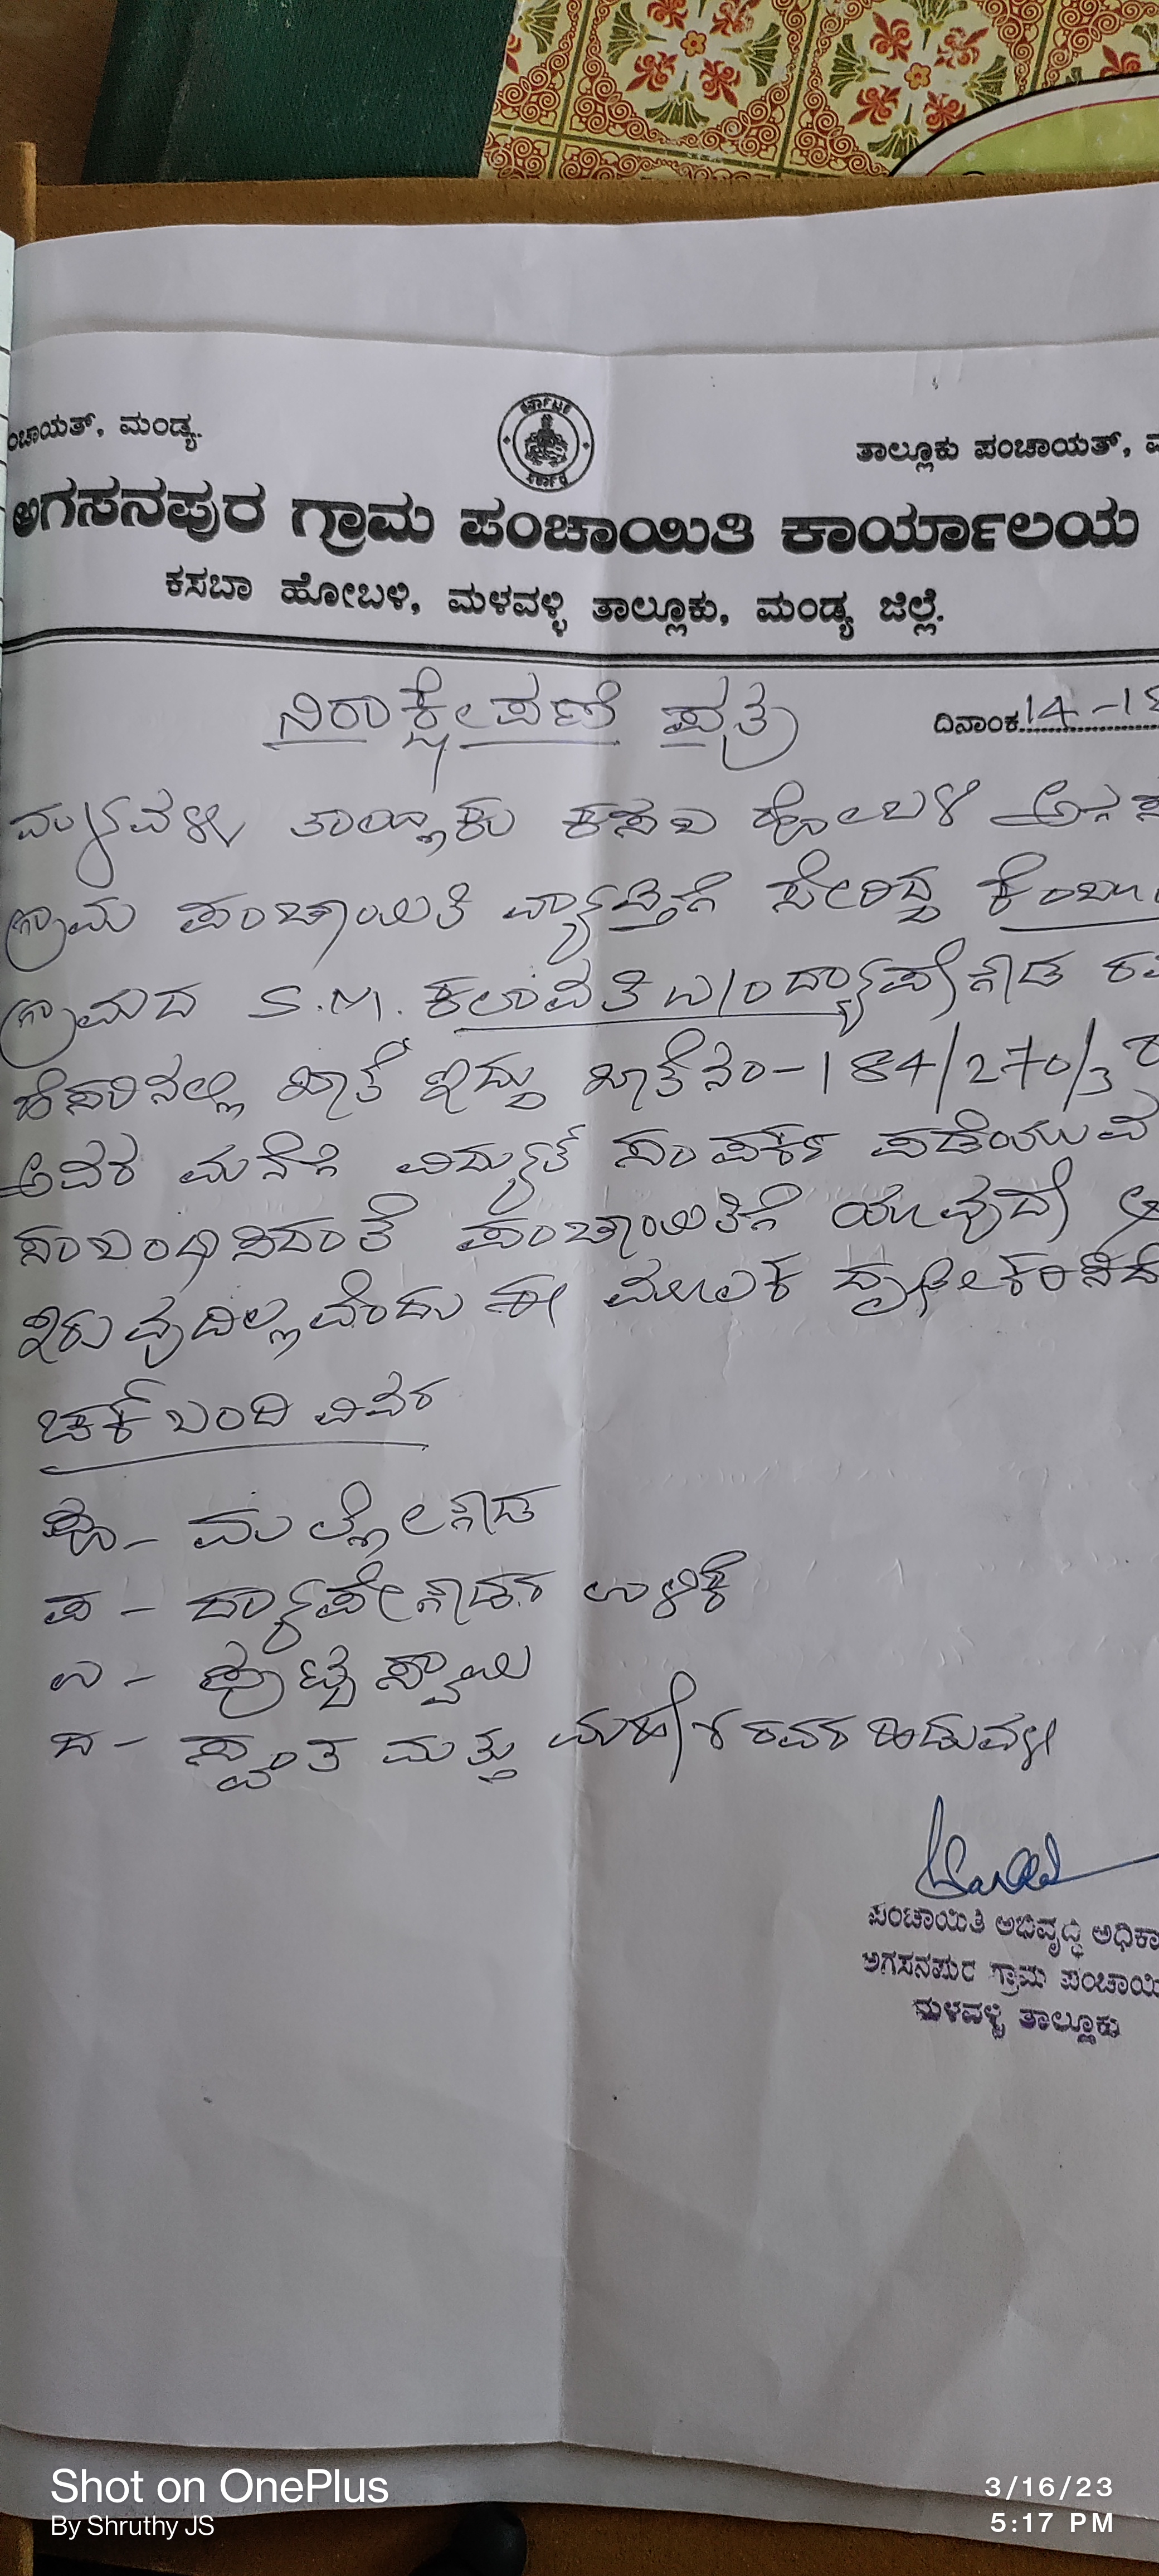 ಕರ್ನಾಟಕ
ಸರ್ಕಾರ
ಂಚಾಯತ್, ಮಂಡ್ಯ.
ತಾಲ್ಲೂಕು ಪಂಚಾಯತ್,
ಅಗಸನಪುರ ಗ್ರಾಮ ಪಂಚಾಯಿತಿ ಕಾರ್ಯಾಲಯ
ಕಸಬಾ ಹೋಬಳಿ, ಮಳವಳ್ಳಿ ತಾಲ್ಲೂಕು, ಮಂಡ್ಯ ಜಿಲ್ಲೆ.
ನಿರಾಕ್ಷೇಪಣೆ ಪತ್ರ
ದಿನಾಂಕ 14-1
ಮಳವಳ್ಳಿ ತಾಲ್ಲೂಕು ಕಸಬ ಹೋಬಳಿ ಅಗಸ
ಗ್ರಾಮ ಪಂಚಾಯಿತಿ ವ್ಯಾಪ್ತಿಗೆ ಸೇರಿದ್ದ
ಗ್ರಾಮದ S.M. ಕಲಾವತಿ ರವ
ಹೆಸರಿನಲ್ಲಿ ಖಾತೆ ಇದ್ದು ಖಾತೆ ನಂ-184/270/3
ಅವರ ಮನೆಗೆ ವಿದ್ಯುತ್ ಸಂಪರ್ಕ ಪಡೆಯುವ
ಸಂಬಂಧಿಸಿದಂತೆ ಪಂಚಾಯಿತಿಗೆ ಯಾವುದೇ ಆ
ಇರುವುದಿಲ್ಲವೆಂದು ಈ ಮೂಲಕ ದೃಢೀಕರಿಸಿದೆ
ಚಕ್ ಬಂದಿ ವಿವರ
ಪೂ - ಮಲ್ಲೇಗೌಡ
ಪ - ದ್ಯಾಪೇಗೌಡರ ಉಳಿಕೆ
ಉ - ಪುಟ್ಟಸ್ವಾಮಿ
ದ - ಸ್ವಂತ ಮತ್ತು ಮಹೇಶ ರವರ ಹಿಡುವಳಿ
ಪಂಚಾಯಿತಿ ಅಭಿವೃದ್ಧಿ ಅಧಿಕಾ
ಅಗಸನಪುರ ಗ್ರಾಮ ಪಂಚಾಯಿ
ಮಳವಳ್ಳಿ ತಾಲ್ಲೂಕು
Shot on OnePlus
By Shruthy JS
3/16/23
5:17 PM